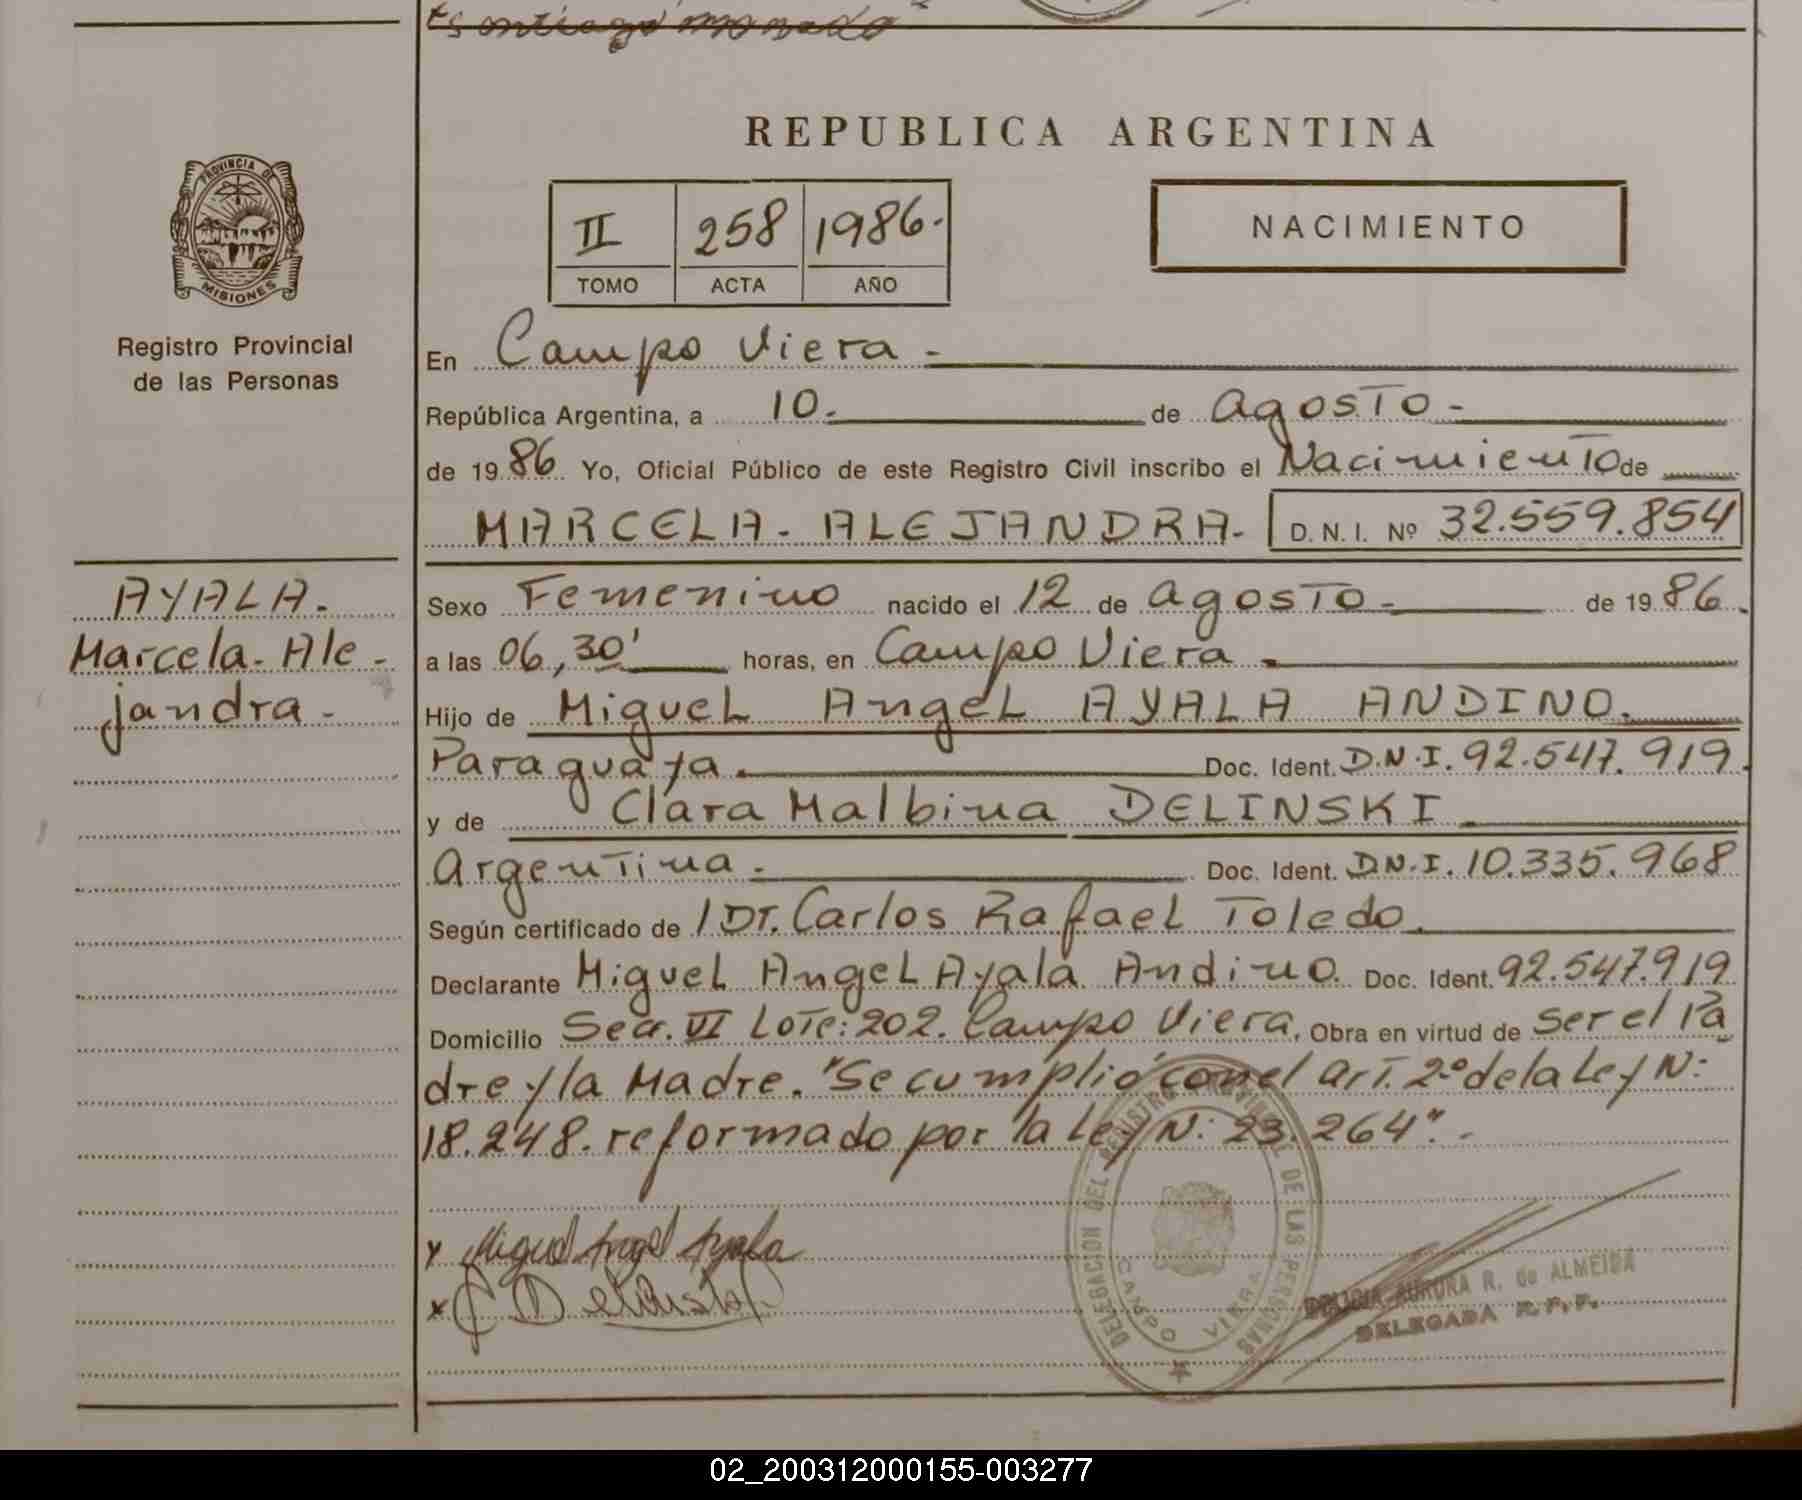 REPUBLICA ARGENTINA
II 258 1986.
TOMO ACTA AÑO
NACIMIENTO
PROVINCIA DE
MISIONES
Registro Provincial
de las Personas
En Campo Viera -
República Argentina, a 10. de agosto -
de 19 86 Yo, Oficial Público de este Registro Civil inscribo el Nacimiento de
MARCELA - ALEJANDRA - D. N. I. Nº 32.559.854
AYALA.
Marcela - Ale -
jandra -
Sexo Femenino nacido el 12 de agosto - de 19 86.
a las 06,30' horas, en Campo Viera -
Hijo de Miguel Angel AYALA ANDINO.
Paraguaya. Doc. Ident. D.N.I. 92.547.919.
y de Clara Malbina DELINSKI
Argentina - Doc. Ident. D.N.I. 10.335.968
Según certificado de / DT. Carlos Rafael Toledo.
Declarante Miguel Angel Ayala Andino. Doc. Ident. 92.547.919
Domicilio Secc. VI Lote: 202. Campo Viera, Obra en virtud de ser el Pa
dre y la Madre. "Se cumplió con el art. 2º de la Ley N:
18.248. reformado por la Ley N: 23.264". -
x Miguel Angel Ayala
x C Delinski
DELEGACION DEL REGISTRO PROVINCIAL DE LAS PERSONAS
CAMPO VIERA
AURORA R. de ALMEIDA
DELEGADA R. P. P.
02_200312000155-003277